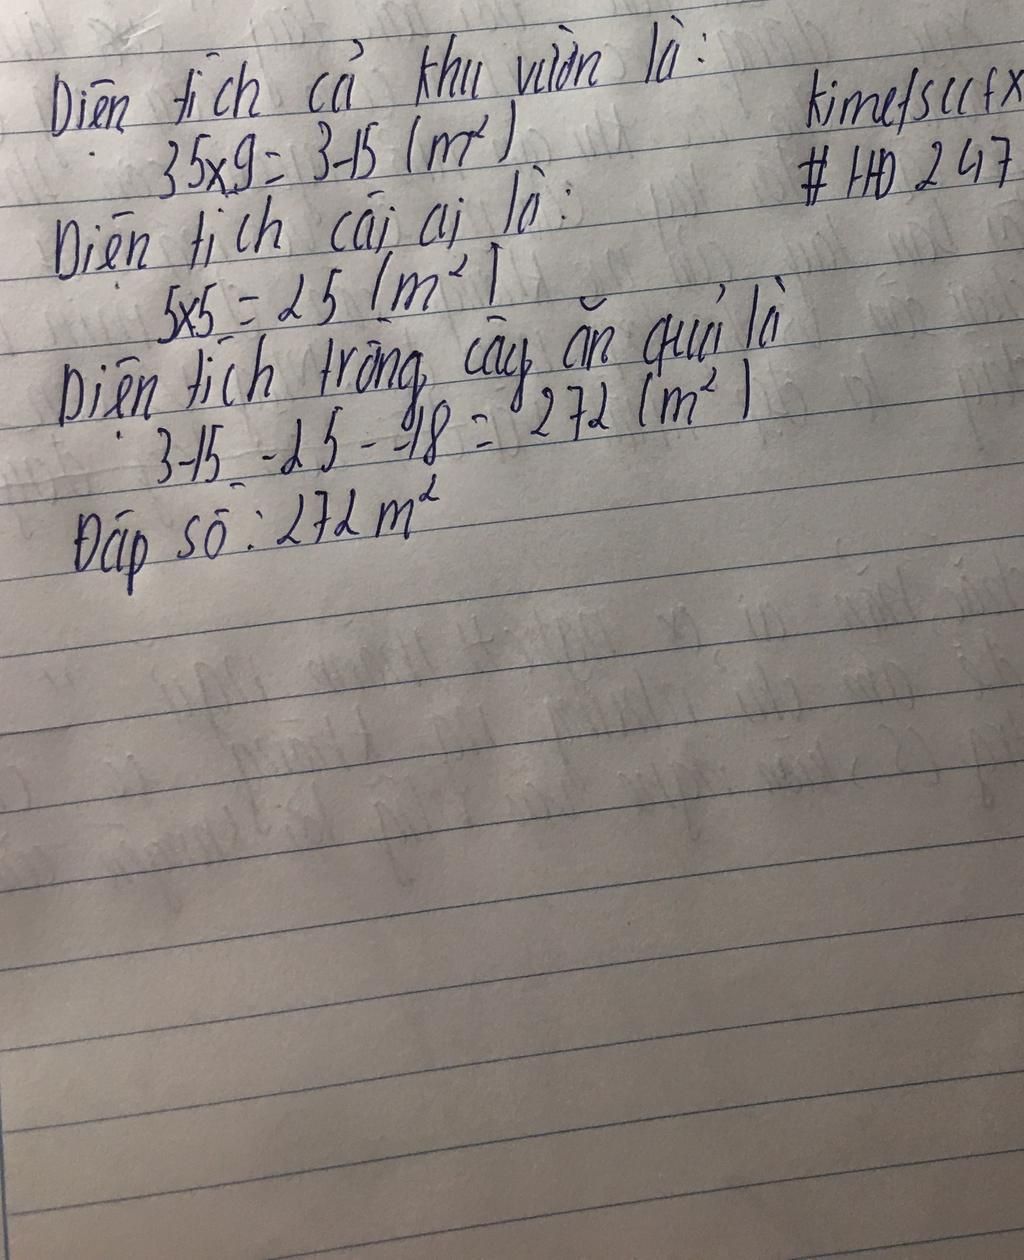 Diện tích cả khu vườn là:
35x9 = 315 (m²)
Diện tích cái ai là:
5x5 = 25 (m²)
Diện tích trồng cây ăn quả là
315 - 25 - 18 = 272 (m²)
Đáp số: 272 m²
# HD 247